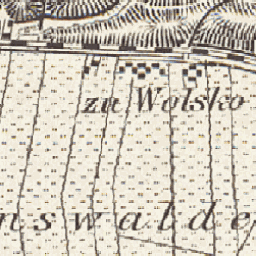 zu Wolsko
nswalde